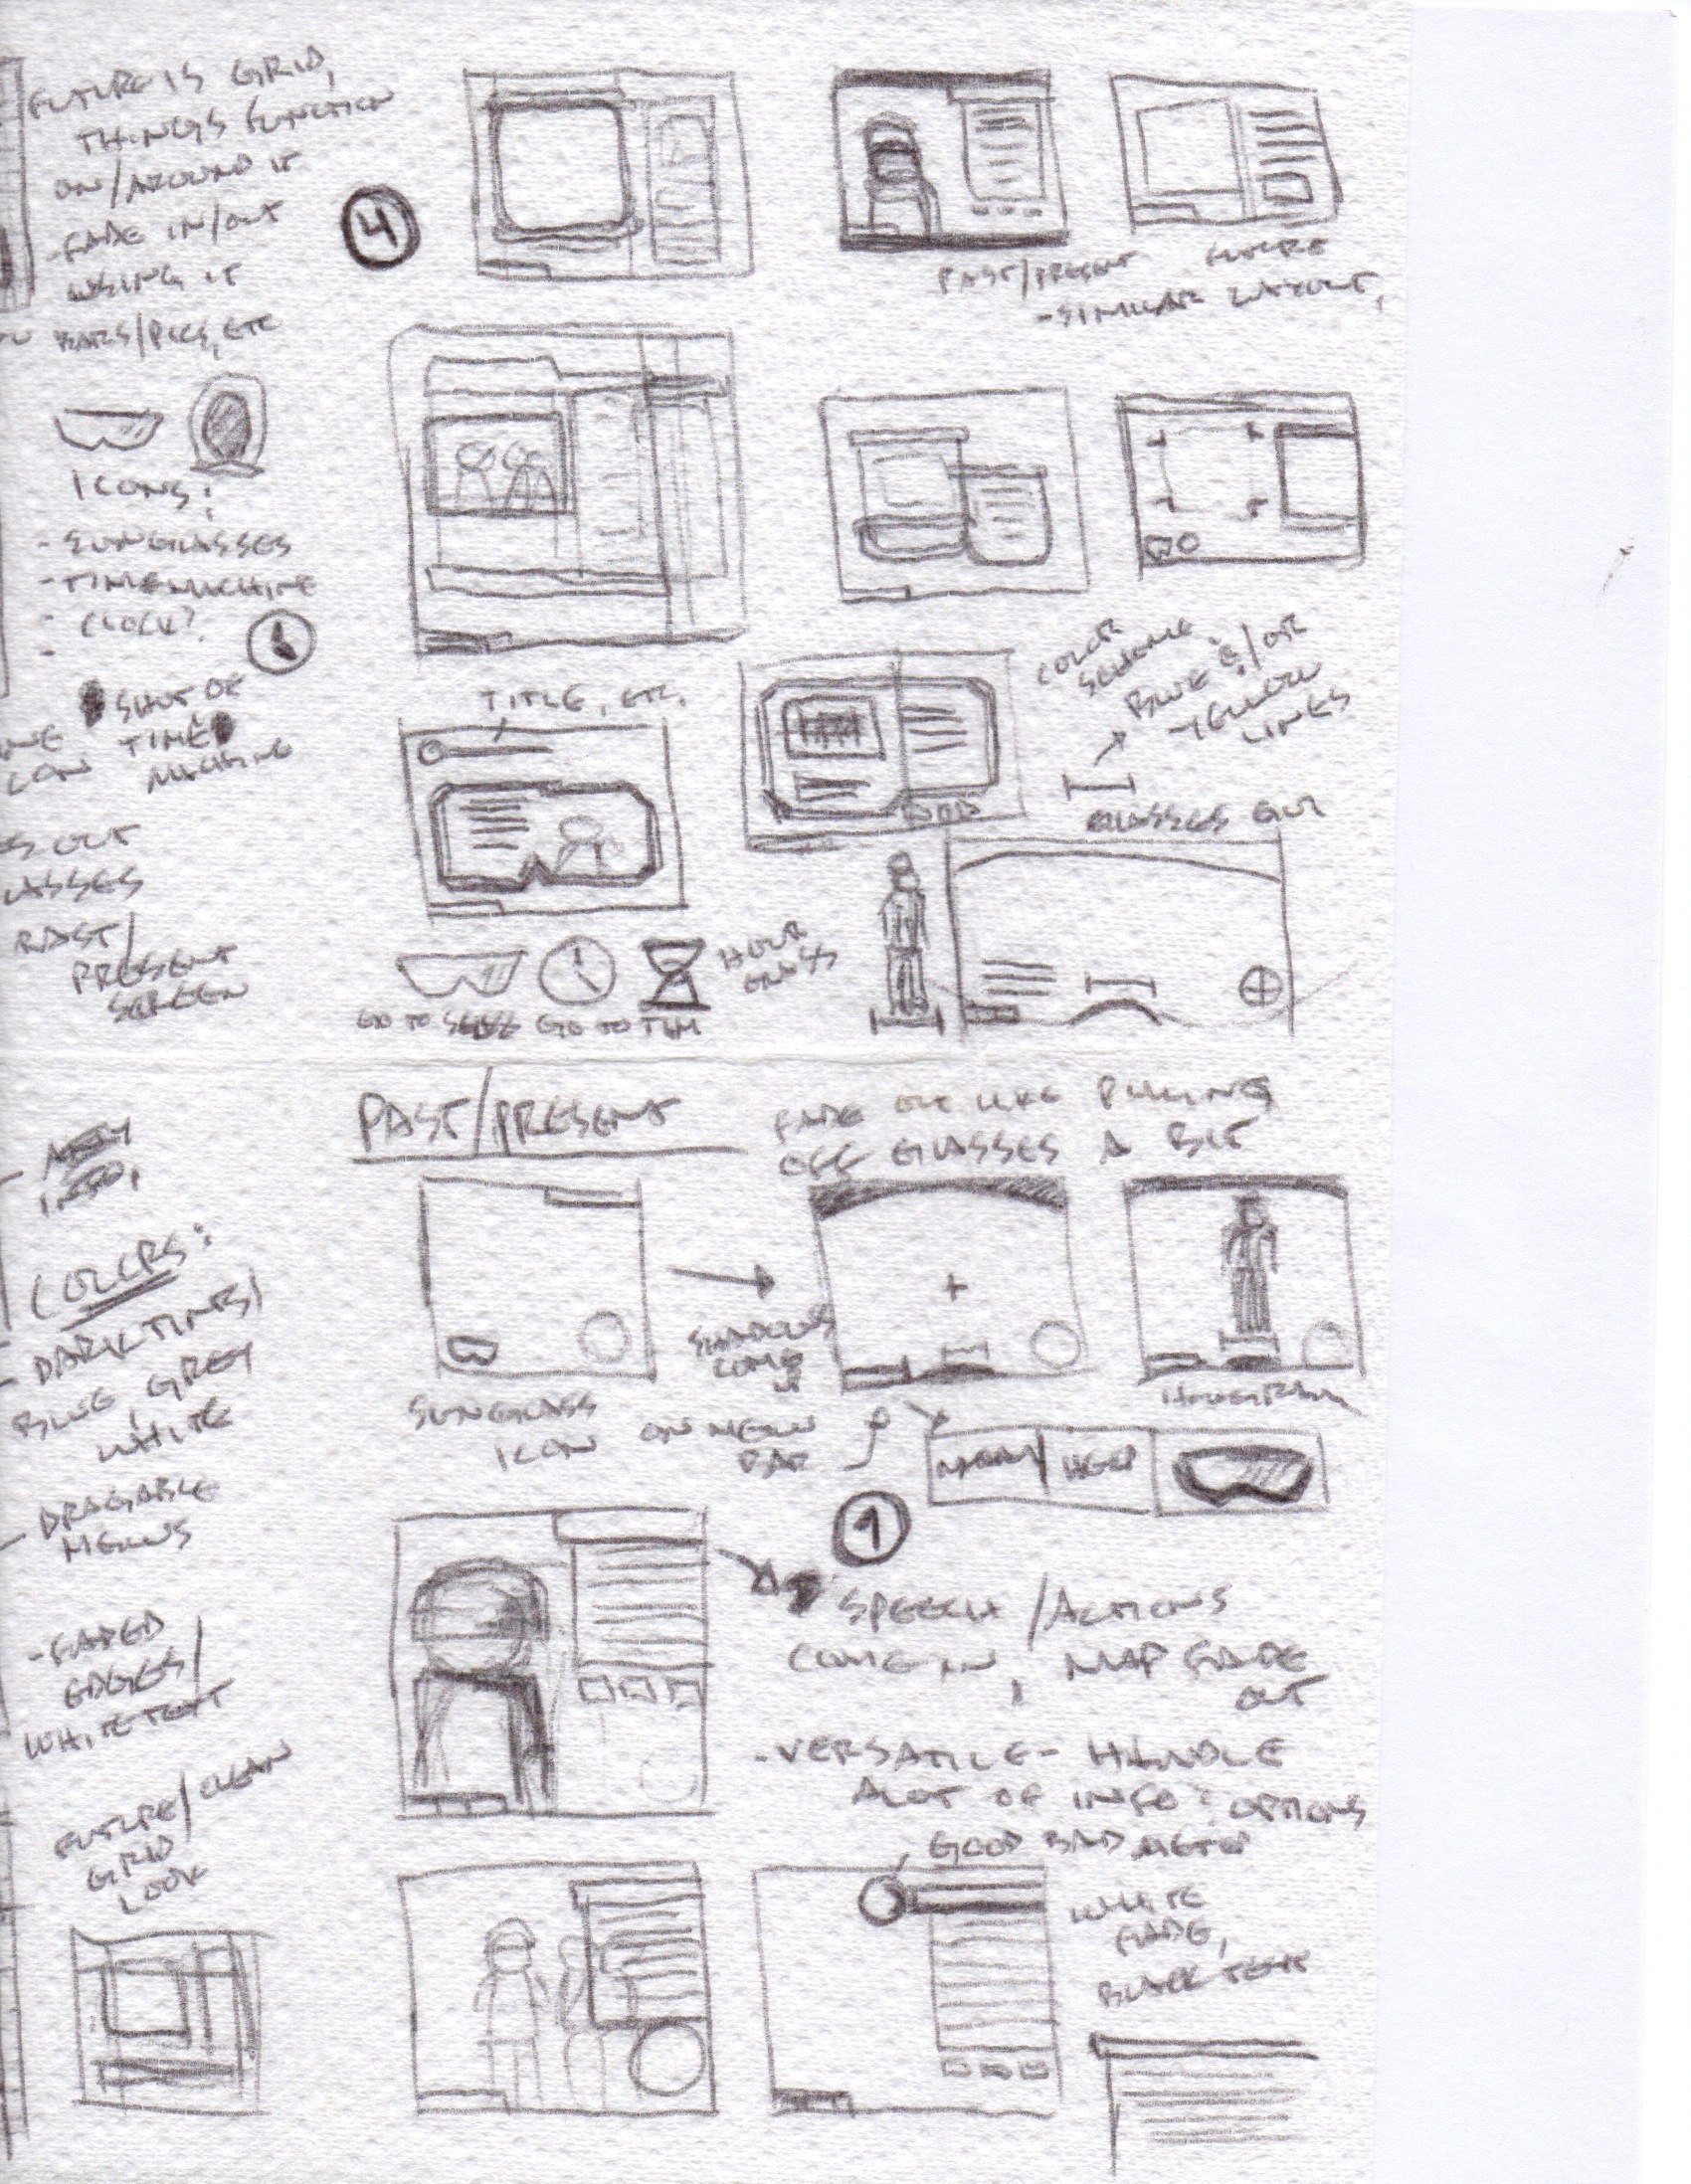 FUTURE IS GRID,
THINGS FUNCTION
ON/AROUND IT
-FADE IN/OUT
USING IT
BARS/PICS, ETC
4
PAST/PRESENT FUTURE
-SIMILAR LAYOUT,
ICONS:
- SUNGLASSES
- TIMEMACHINE
- CLOCK?
-
SHOT OF
TIME
MACHINE
TITLE, ETC.
COLOR
SCHEME
BLUE &/OR
YELLOW
LINES
GLASSES GUI
OUT
PAST/
PRESENT
SCREEN
HOUR
GLASS
GO TO GO TO T&M
PAST/PRESENT
FADE OUT LIKE PULLING
OFF GLASSES A BIT
INFO,
COLORS:
DARK TINTS/
BLUE, GREY
WHITE
- DRAGABLE
MENUS
-FADED
EDGES/
WHITE TEXT
FUTURE/CLEAN
GRID
LOOK
SHADOWS
COME
SUNGLASS
ICON
ON MENU
BAR
HOLOGRAM
MENU HELP
1
SPEECH/ACTIONS
COME IN, MAP FADE
OUT
-VERSATILE- HANDLE
ALOT OF INFO: OPTIONS
GOOD BAD METER
WHITE
FADE,
BLACK TEXT